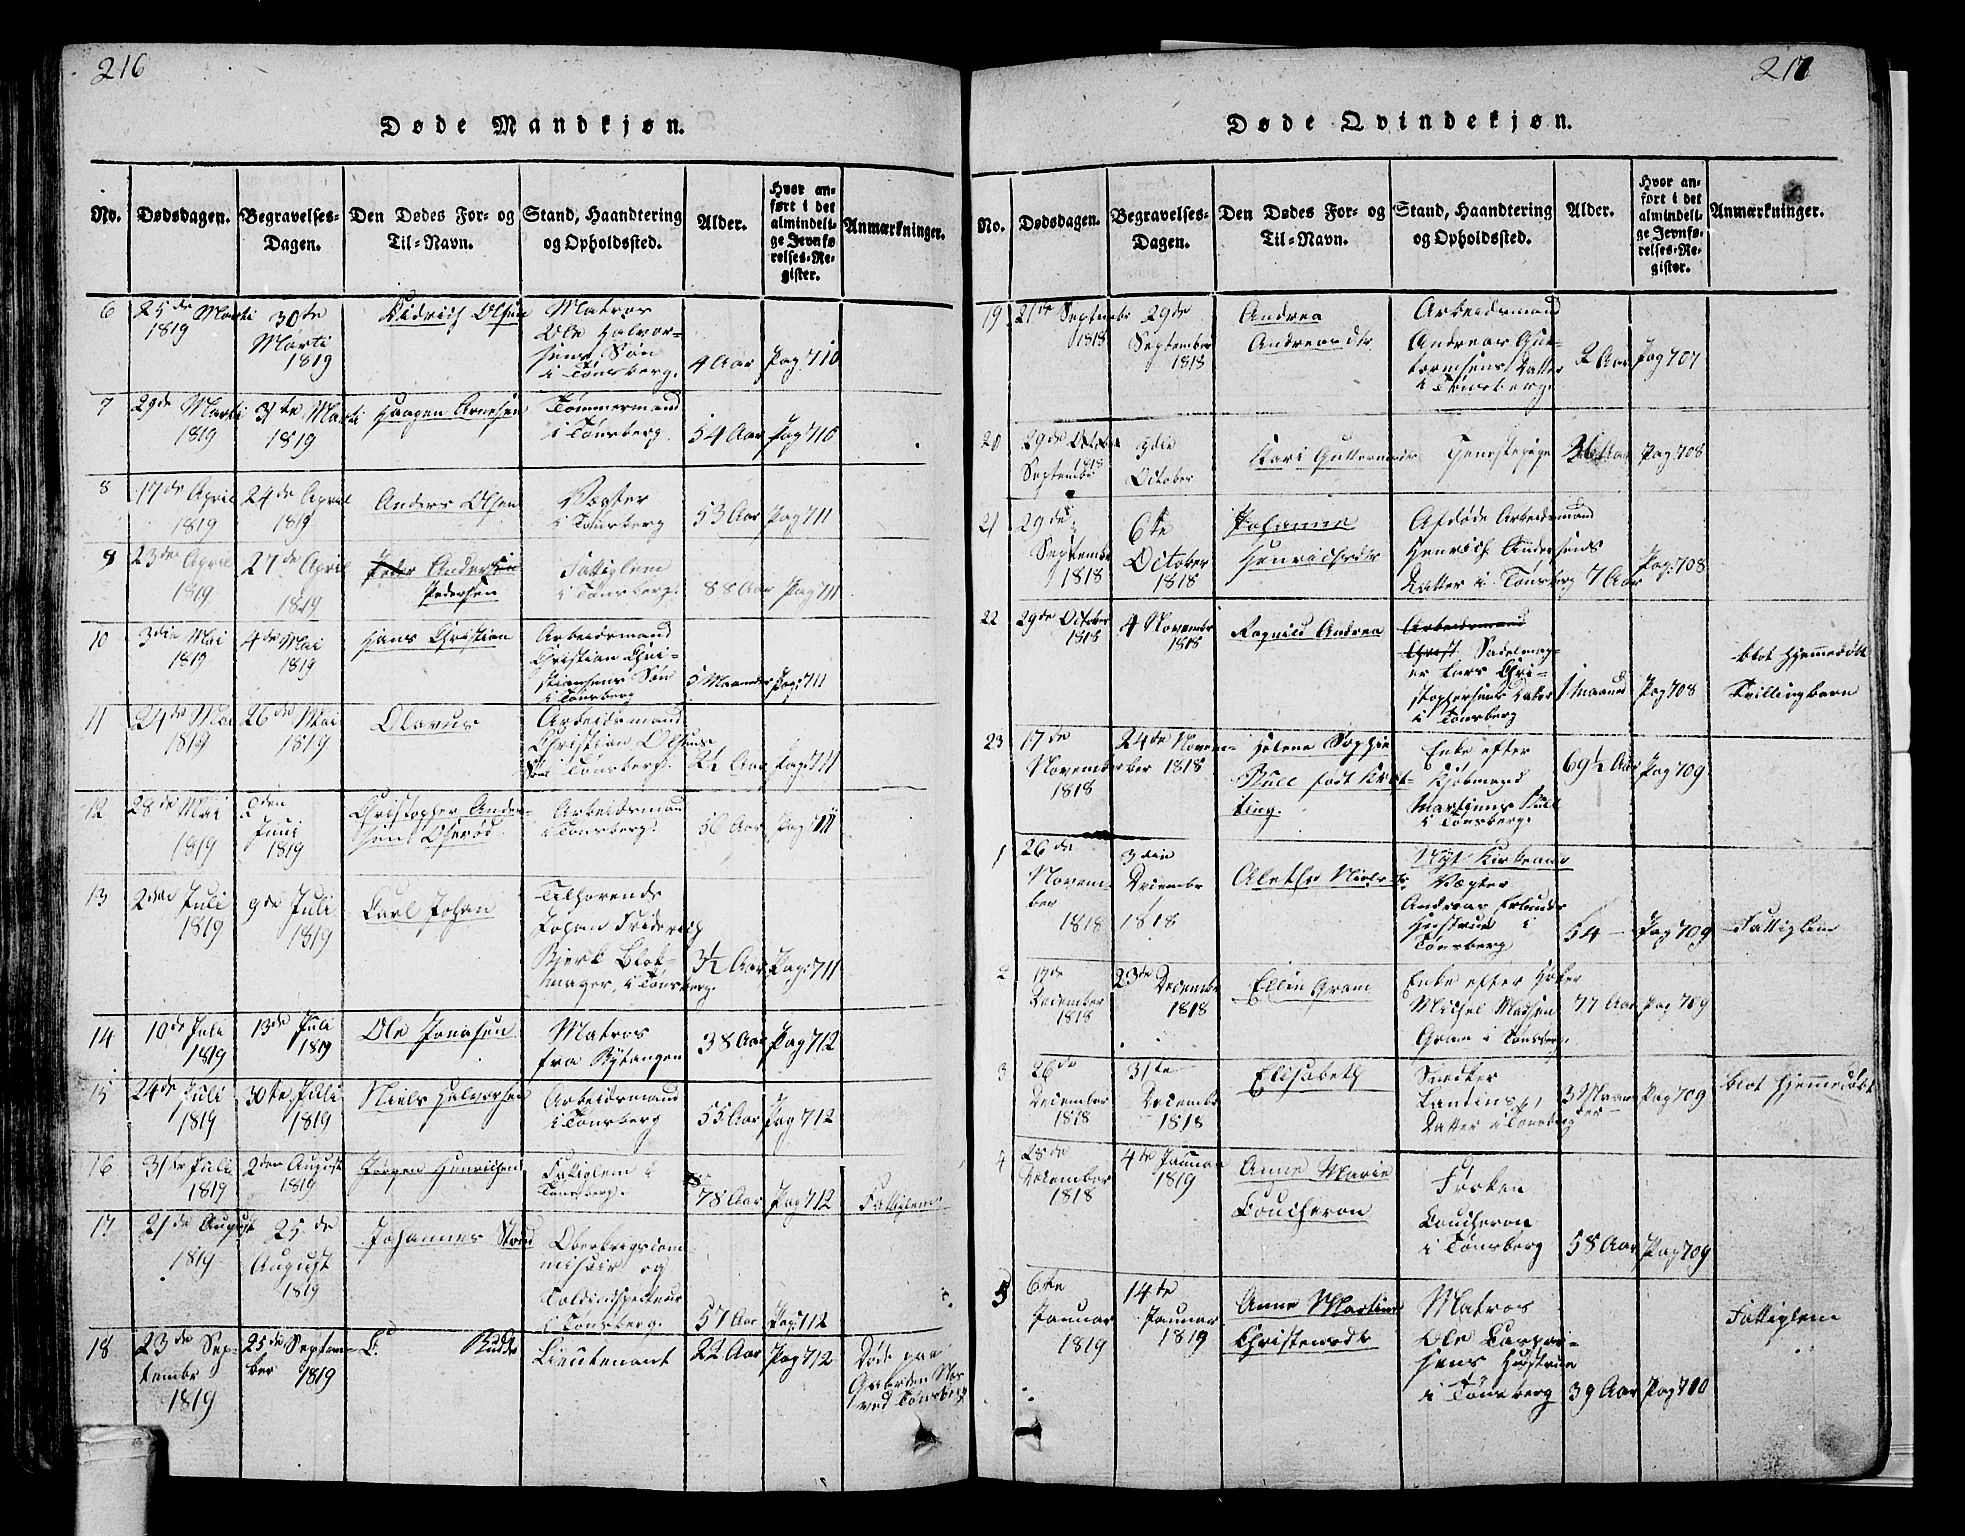 216
Døde Mandkjøn.
No. Dødsdagen. Begravelses-Dagen. Den Dødes For- og Til-Navn. Stand, Haandtering og Opholdssted. Alder. Hvor anført i det almindelige Jevnførelses-Register. Anmærkninger.
6 25de Marti 1819 30te Marti 1819 Olsen Matros
Ole Halvor-
sens Søn
i Tønsberg. 4 Aar Pag: 710
7 29de Marti 1819 31te Marti 1819 Haagen Arnesen Tømmermand
i Tønsberg. 54 Aar Pag: 710
8 17de April 1819 24de April 1819 Anders Olsen Vægter
i Tønsberg 53 Aar Pag: 711
9 23de April 1819 27de April 1819 Peder Andersen
Pedersen Fattiglem
i Tønsberg. 88 Aar Pag: 711
10 3die Mai 1819 4de Mai 1819 Hans Christian Arbeidsmand
Christian Chri-
stiansens Søn
i Tønsberg 5 Maaneder Pag: 711
11 24de Mai 1819 26de Mai 1819 Olavus Arbeidsmand
Christian Olsens
Søn i Tønsberg. 2½ Aar Pag: 711
12 28de Mai 1819 2den Juni 1819 Christopher Ander-
sen Oserød Arbeidsmand
i Tønsberg. 56 Aar Pag: 711
13 2den Juli 1819 9de Juli 1819 Carl Johan Tilhørende
Johan Friderich
Bjerk Blok-
mager, i Tønsberg. 3½ Aar Pag: 711
14 10de Juli 1819 13de Juli 1819 Ole Jonasen Matros
fra Bytangen 38 Aar Pag 712
15 24de Juli 1819 30te Juli 1819 Niels Halvorsen Arbeidsmand
i Tønsberg 55 Aar Pag 712
16 31te Juli 1819 2den August 1819 Jørgen Henrichsen Fattiglem i
Tønsberg. 78 Aar Pag 712 Fattiglem
17 21de August 1819 25de August 1819 Johannes Strand Oberkrigscom-
misair og
Toldinspecteur
i Tønsberg. 57 Aar Pag: 712
18 23de Sep-
tembr 1819 25de Septem-
ber 1819 C. Budde Lieutenant 22 Aar Pag 712 Døde paa
ved Tønsberg
217
Døde Qvindekjøn.
No. Dødsdagen. Begravelses-Dagen. Den Dødes For- og Til-Navn. Stand, Haandtering og Opholdssted. Alder. Hvor anført i det almindelige Jevnførelses-Register. Anmærkninger.
19 21de Septembr 1818 29de September 1818 Andrea
Andreasdtr Arbeidsmand
Andreas Gut-
tormsens Datter
i Tønsberg. 2 Aar Pag 707
20 29de October 1818
Septembr 9die October Kari Guttormsdtr Tjenestepige Pag 708
21 29de Septembr 1818 6te October 1818 Johanne
Henrichsdtr Afdøde Arbeidsmand
Henrich Andersens
Datter i Tønsberg 7 Aar Pag: 708
22 29de October 1818 4 Novembr 1818 Ragnild Andrea Arbeidsmand
Christ Sadelmag-
er Lars Chri-
stophersens Datter
i Tønsberg 1 Maaned Pag 708 blot Hjemmedøbt
Tvillingbarn
23 17de November 1818 24de Novem-
ber 1818 Helene Sophie
Bull født Kret-
ting. Enke efter
Kjøbmand
Martinus Bull
i Tønsberg. 69½ Aar Pag 709
Nyt Kirkeaar
1 26de Novem-
ber 1818 3die Decembr 1818 Alethe Nielsdtr Vægter
Andreas Erlands
Hustrue i
Tønsberg 54 — Pag 709 Fattiglem
2 17de December 1818 23de Decembr 1818 Ellen Gram Enke efter Høker
Michel Madsen
Gram i Tønsberg. 77 Aar Pag 709
3 26de December 1818 31te Decembr 1818 Elisabeth Snedker
Lantins,
Datter i Tønsberg 3 Maane-
der Pag 709 blot Hjemmedøbt
4 28de December 1818 4de Januar 1819 Anne Marie
Coucheron Frøken
Coucheron
i Tønsberg 58 Aar Pag 709
5 6te Januar 1819 14de Januar 1819 Anne Martine
Christensdtr Matros
Ole Caspri-
sens Hustrue
i Tønsberg 39 Aar Pag 710 Fattiglem